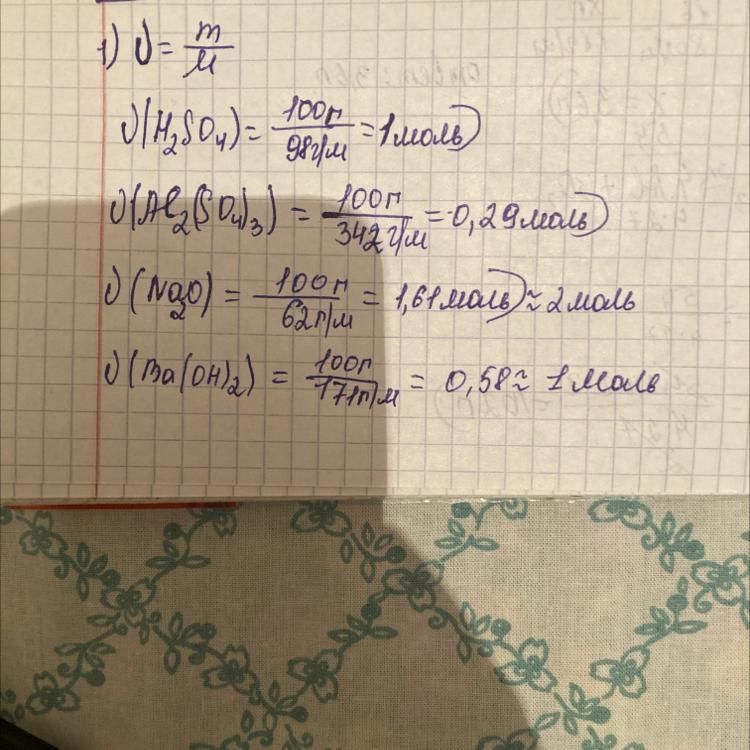 1) ν = m/M
ν(H₂SO₄) = 100г/98г/м = 1 моль)
ν(Al₂(SO₄)₃) = 100г/342г/м = 0,29 моль)
ν(Na₂O) = 100г/62г/м = 1,61 моль) ≈ 2 моль
ν(Ba(OH)₂) = 100г/171г/м = 0,58 ≈ 1 моль